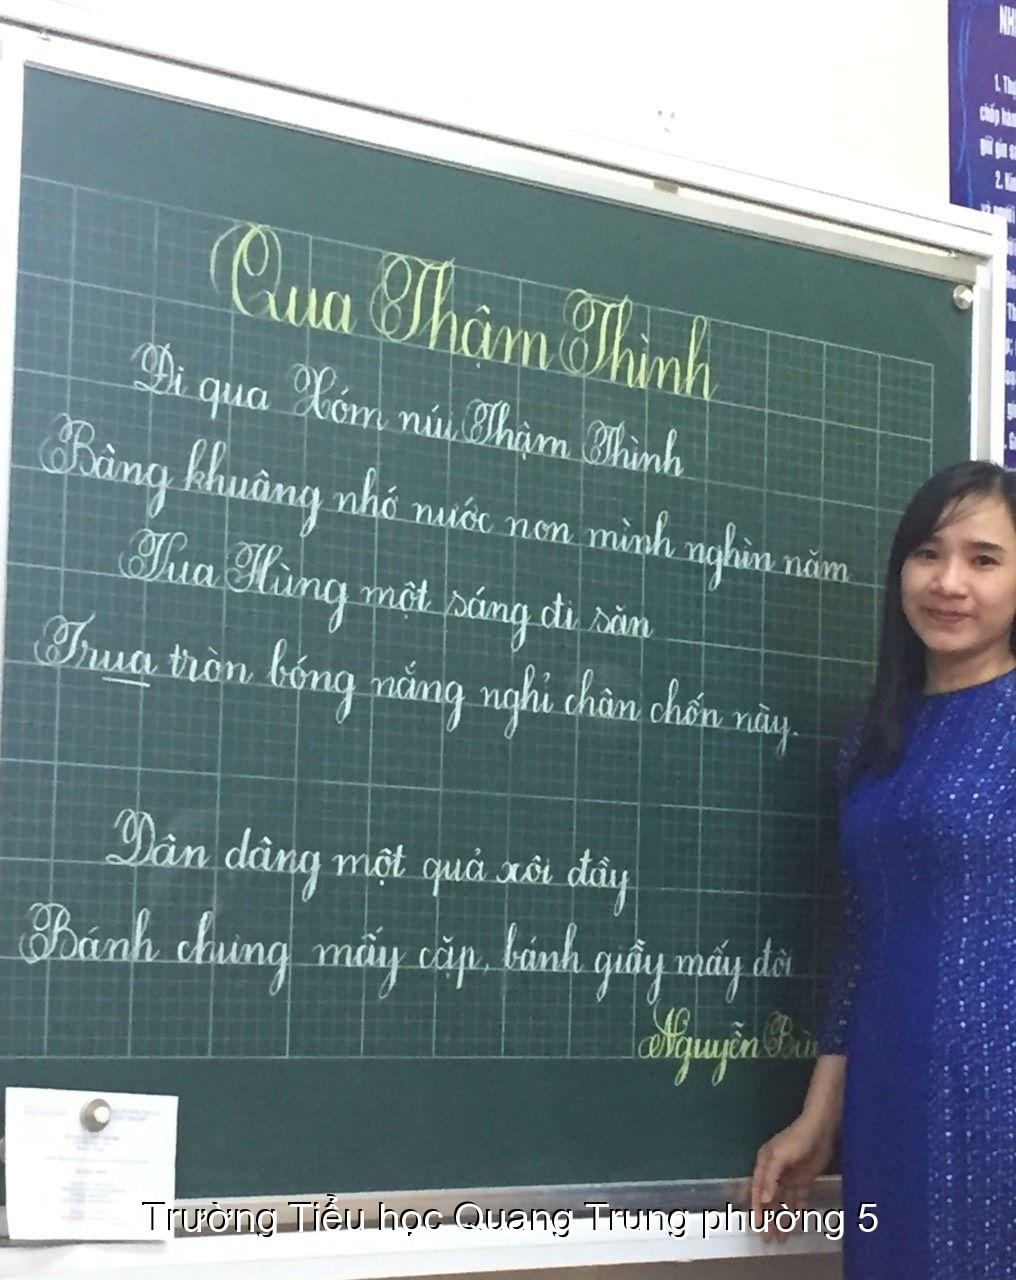 Qua Thậm Thình
Đi qua Xóm núi Thậm Thình
Bâng khuâng nhớ nước non mình nghìn năm
Vua Hùng một sáng đi săn
Trưa tròn bóng nắng nghỉ chân chốn này.
Dân dâng một quả xôi đầy
Bánh chưng mấy cặp, bánh giầy mấy đôi
Nguyễn
1.
2.
Trường Tiểu học Quang Trung phường 5